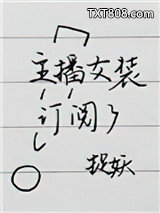 TXT808.com
主播女装
订阅了
捉妖